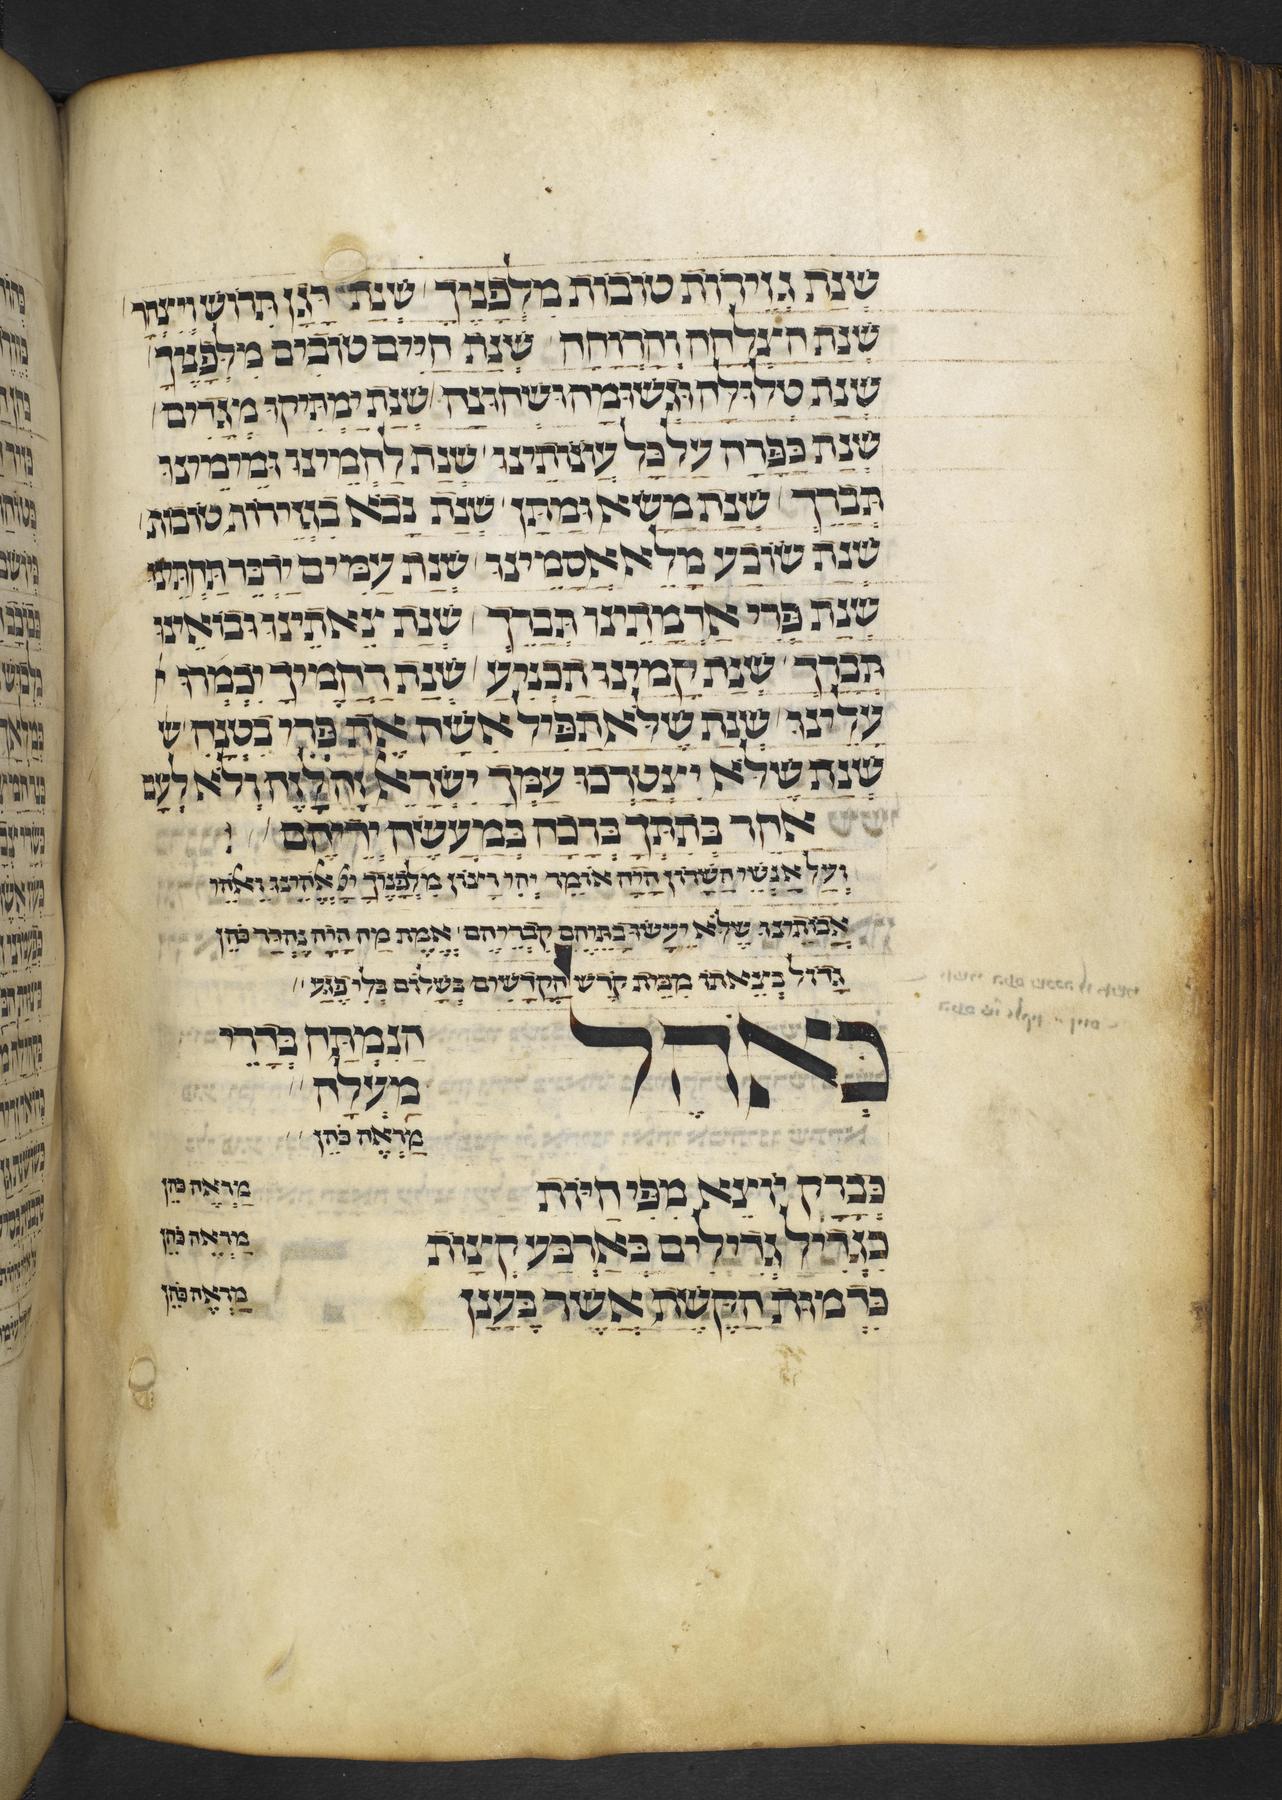 שְׁנַת גְּזֵירוֹת טוֹבוֹת מִלְּפָנֶיךָ שְׁנַת דָּגָן תִּירוֹשׁ וְיִצְהָר
שְׁנַת הַצְלָחָה וְהַרְוָחָה שְׁנַת חַיִּים טוֹבִים מִלְּפָנֶיךָ
שְׁנַת טְלוּלָה וּגְשׁוּמָה וּשְׁחוּנָה שְׁנַת יַמְתִּיקוּ מְגָדִים
שְׁנַת כַּפָּרָה עַל כָּל עֲוֹנוֹתֵינוּ שְׁנַת לַחְמֵינוּ וּמֵימֵינוּ
תְּבָרֵךְ שְׁנַת מַשָּׂא וּמַתָּן שְׁנַת נָבֹא
שְׁנַת שׂוֹבַע מָלֵא אֲסָמֵינוּ שְׁנַת עַמִּים יַדְבֵּר תַּחְתֵּינוּ
שְׁנַת פְּרִי אַדְמָתֵינוּ תְּבָרֵךְ שְׁנַת צֵאתֵינוּ וּבוֹאֵינוּ
תְּבָרֵךְ שְׁנַת קָמֵינוּ תַכְנִיעַ שְׁנַת רַחֲמֶיךָ יִכְמְרוּ
עָלֵינוּ שְׁנַת שֶׁלֹּא תַפִּיל אִשָּׁה אֶת פְּרִי בִטְנָהּ ש
שְׁנַת שֶׁלֹּא יִצְטָרְכוּ עַמְּךָ יִשְׂרָאֵל זֶה לָזֶה וְלֹא לְעַם
אַחֵר בְּתִתְּךָ בְּרָכָה בְּמַעֲשֵׂה יְדֵיהֶם
וְעַל אַנְשֵׁי הַשָּׁרוֹן הָיָה אוֹמֵר יְהִי רָצוֹן מִלְּפָנֶיךָ אֱלֹהֵינוּ וֵאלֹהֵי
אֲבוֹתֵינוּ שֶׁלֹּא יֵעָשׂוּ בָתֵּיהֶם קִבְרֵיהֶם אֱמֶת מַה הָיָה נֶהְדָּר כֹּהֵן
גָּדוֹל בְּצֵאתוֹ מִבֵּית קֹדֶשׁ הַקֳּדָשִׁים בְּשָׁלוֹם בְּלִי פֶגַע
כְּאֹהֶל הַנִּמְתָּח בְּדָרֵי
מַעְלָה
מַרְאֵה כֹהֵן
כִּבְרָקִ יוֹצֵא מִפִּי חַיּוֹת מַרְאֵה כֹהֵן
כִּגְדִיל גְּדִילִים בְּאַרְבַּע קְצָוֹת מַרְאֵה כֹהֵן
כִּדְמוּת הַקֶּשֶׁת אֲשֶׁר בֶּעָנָן מַרְאֵה כֹהֵן